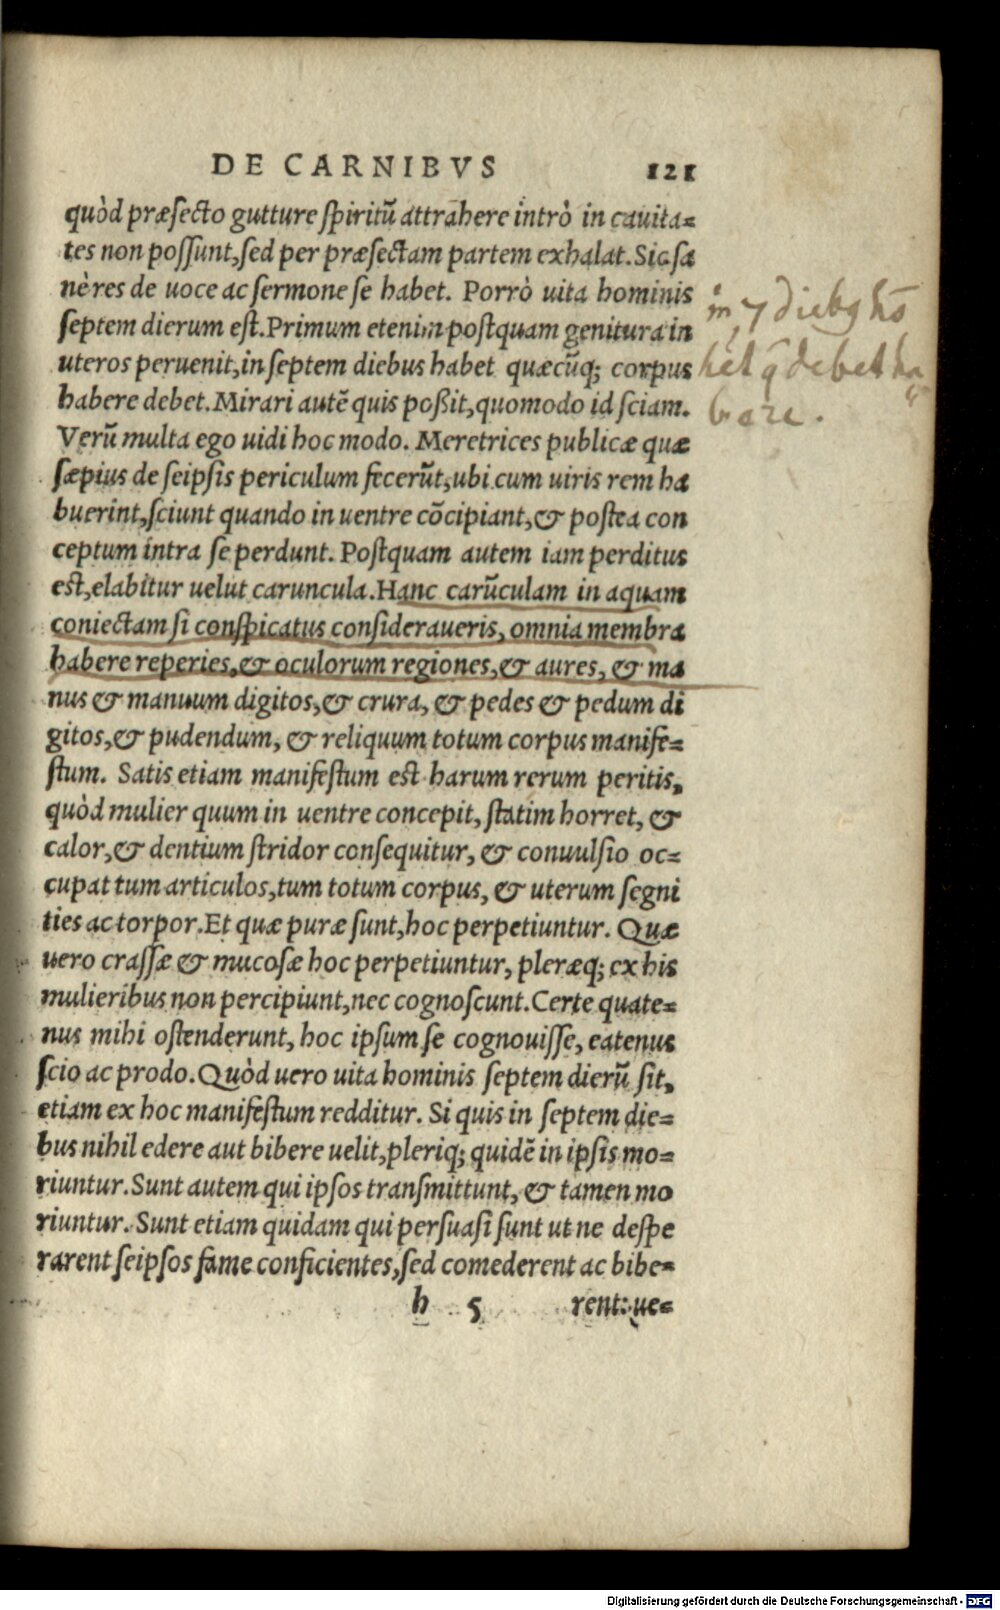 DE CARNIBVS 121
quòd præsecto gutture spiritũ attrahere intrò in cauita=
tes non possunt, sed per præsectam partem exhalat. Sic sa
nè res de uoce ac sermone se habet. Porrò uita hominis
septem dierum est. Primum etenim postquam genitura in
uteros peruenit, in septem diebus habet quæcũq; corpus
habere debet. Mirari autẽ quis poßit, quomodo id sciam.
Verũ multa ego uidi hoc modo. Meretrices publicæ quæ
sæpius de seipsis periculum fecerũt, ubi cum uiris rem ha
buerint, sciunt quando in uentre cõcipiant, & postea con
ceptum intra se perdunt. Postquam autem iam perditus
est, elabitur uelut caruncula. Hanc carũculam in aquam
coniectam si conspicatus consideraueris, omnia membra
habere reperies, & oculorum regiones, & aures, & ma
nus & manuum digitos, & crura, & pedes & pedum di
gitos, & pudendum, & reliquum totum corpus manife=
stum. Satis etiam manifestum est harum rerum peritis,
quòd mulier quum in uentre concepit, statim horret, &
calor, & dentium stridor consequitur, & conuulsio oc=
cupat tum articulos, tum totum corpus, & uterum segni
ties ac torpor. Et quæ puræ sunt, hoc perpetiuntur. Quæ
uero crassæ & mucosæ hoc perpetiuntur, pleræq; ex his
mulieribus non percipiunt, nec cognoscunt. Certe quate=
nus mihi ostenderunt, hoc ipsum se cognouisse, eatenus
scio ac prodo. Quòd uero uita hominis septem dierũ sit,
etiam ex hoc manifestum redditur. Si quis in septem die=
bus nihil edere aut bibere uelit, pleriq; quidẽ in ipsis mo=
riuntur. Sunt autem qui ipsos transmittunt, & tamen mo
riuntur. Sunt etiam quidam qui persuasi sunt ut ne despe
rarent seipsos fame conficientes, sed comederent ac bibe=
h 5 rent: ue=
in 7 diebꝯ hõ
het q̃ debet ha
bere.
Digitalisierung gefördert durch die Deutsche Forschungsgemeinschaft - DFG